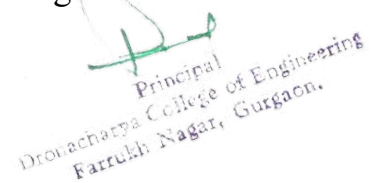 Principal
Dronacharya College of Engineering
Farrukh Nagar, Gurgaon.